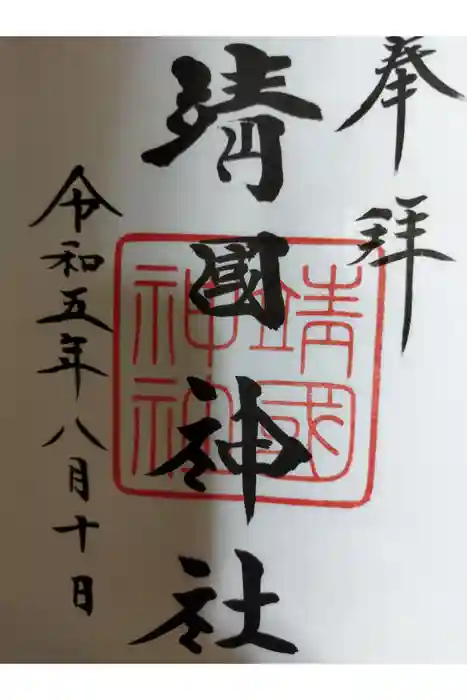 奉拝
靖國神社
令和五年八月十日
靖國
神社